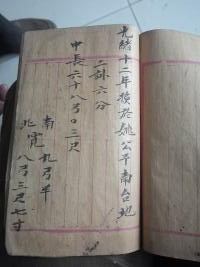 光緒十二年換於姚公平南台地
二訓六分
中長六十八弓〇三尺
南九弓半
北寬八弓三尺七寸